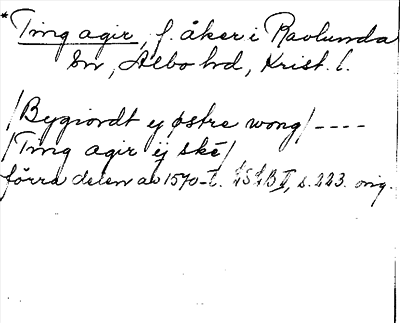 * Ting agir, f. åker i Ravlunda
sn, Albo hd, Krist. l.
/Bygiordt ej østre wong/ ----
/Ting agir ij ske/
förra delen av 1570-t. LSLB II, s. 223. orig.